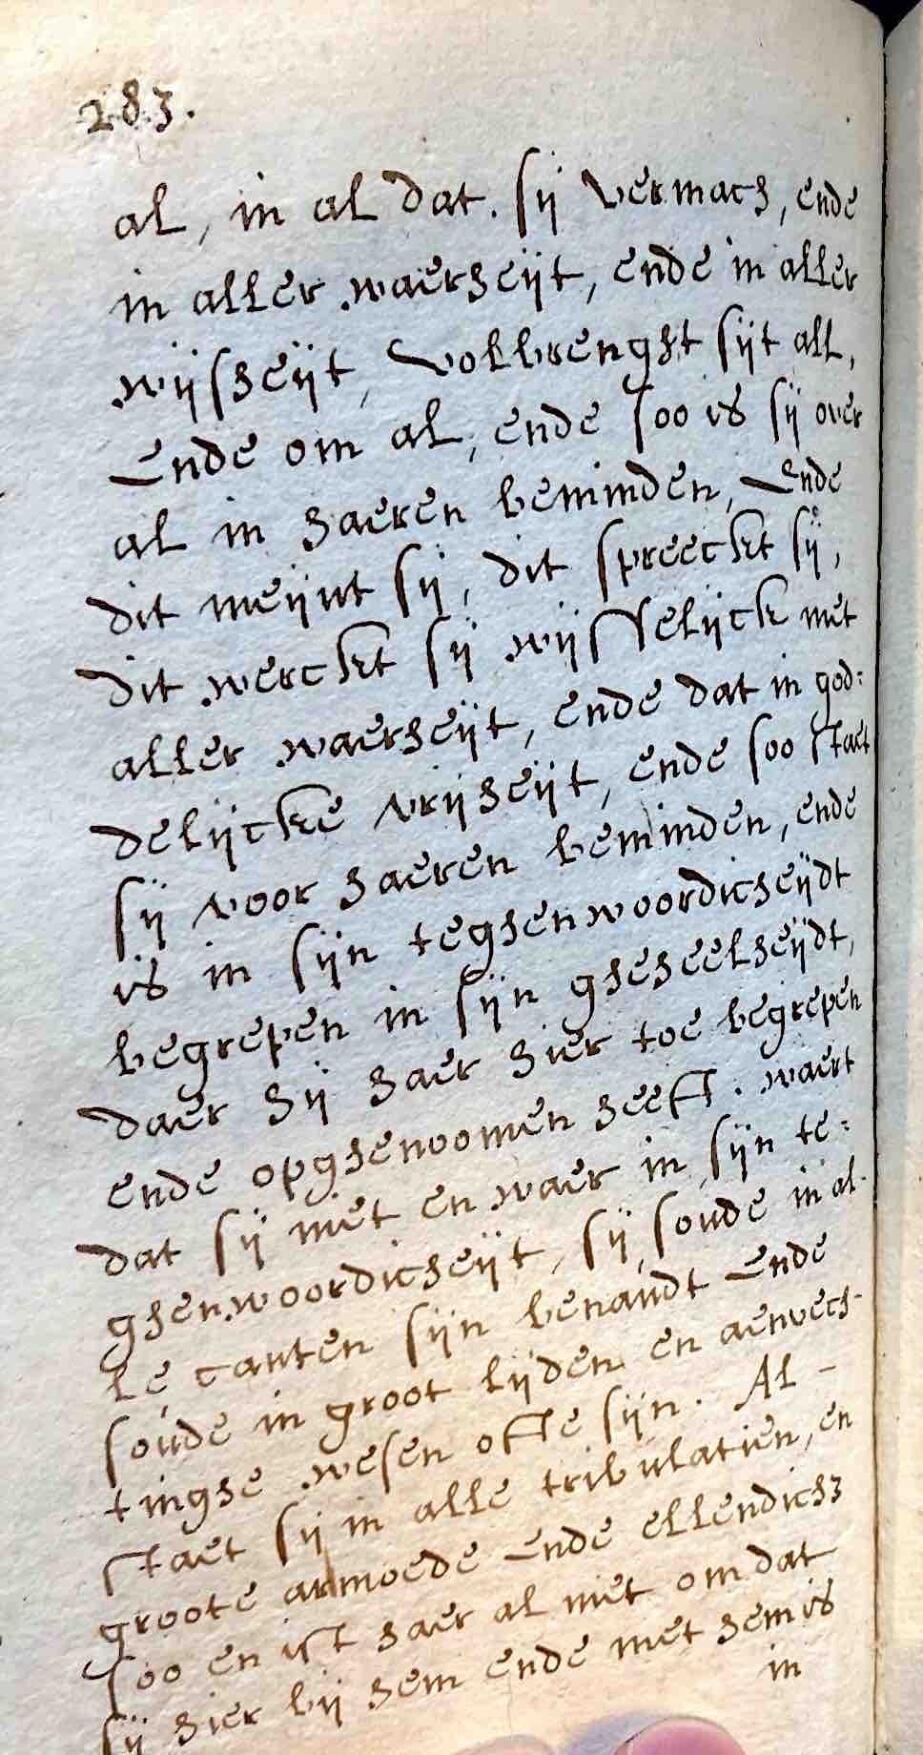 283.
al, in al dat. sij vermach, ende
in aller waerheijt, ende in aller
wijsheijt, volbrenght sijt all,
Ende om al, ende soo is sij over
al in haeren beminden, Ende
dit meijnt sij, dit spreeckt sij,
dit werckt sij wijsselijck met
aller waerheijt, ende dat in god:
delijcke vrijheijt, ende soo staet
sij voor haeren beminden, ende
is in sijn teghenwoordicheijdt
begrepen in sijn gheheelheijdt,
daer hij haer hier toe begrepen
ende opghenoomen heeft. waert
dat sij niet en waer in sijn te:
ghenwoordicheijt, sij soude in al-
le canten sijn benaudt Ende
soude in groot lijden en aenvech-
tinghe wesen ofte sijn. Al -
staet sij in alle tribulatien, en
groote armoede Ende ellendich
soo en ist haer al niet om dat
sij hier bij hem ende met hem is
in